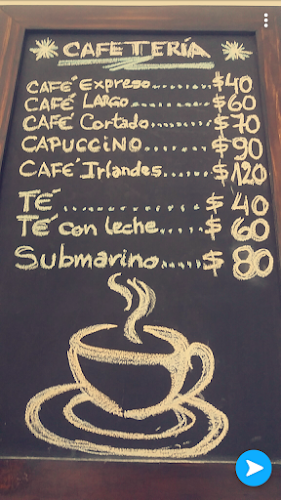 CAFETERÍA
CAFÉ Expreso........$40
CAFÉ LARGO........$60
CAFÉ Cortado........$70
CAPUCCINO........$90
CAFÉ Irlandes......$120
TÉ ................$ 40
TÉ con leche......$ 60
Submarino.....$ 80